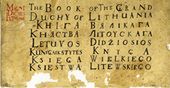 THE BOOK OF THE GRAND
DUCHY OF LITHUANIA
КНІГА ВЯЛІКАГА
КНЯСТВА ЛІТОЎСКАГА
LIETUVOS DIDŽIOSIOS
KUNIGAIKŠTYSTĖS KNYGA
KSIĘGA WIELKIEGO
KSIĘSTWA LITEWSKIEGO